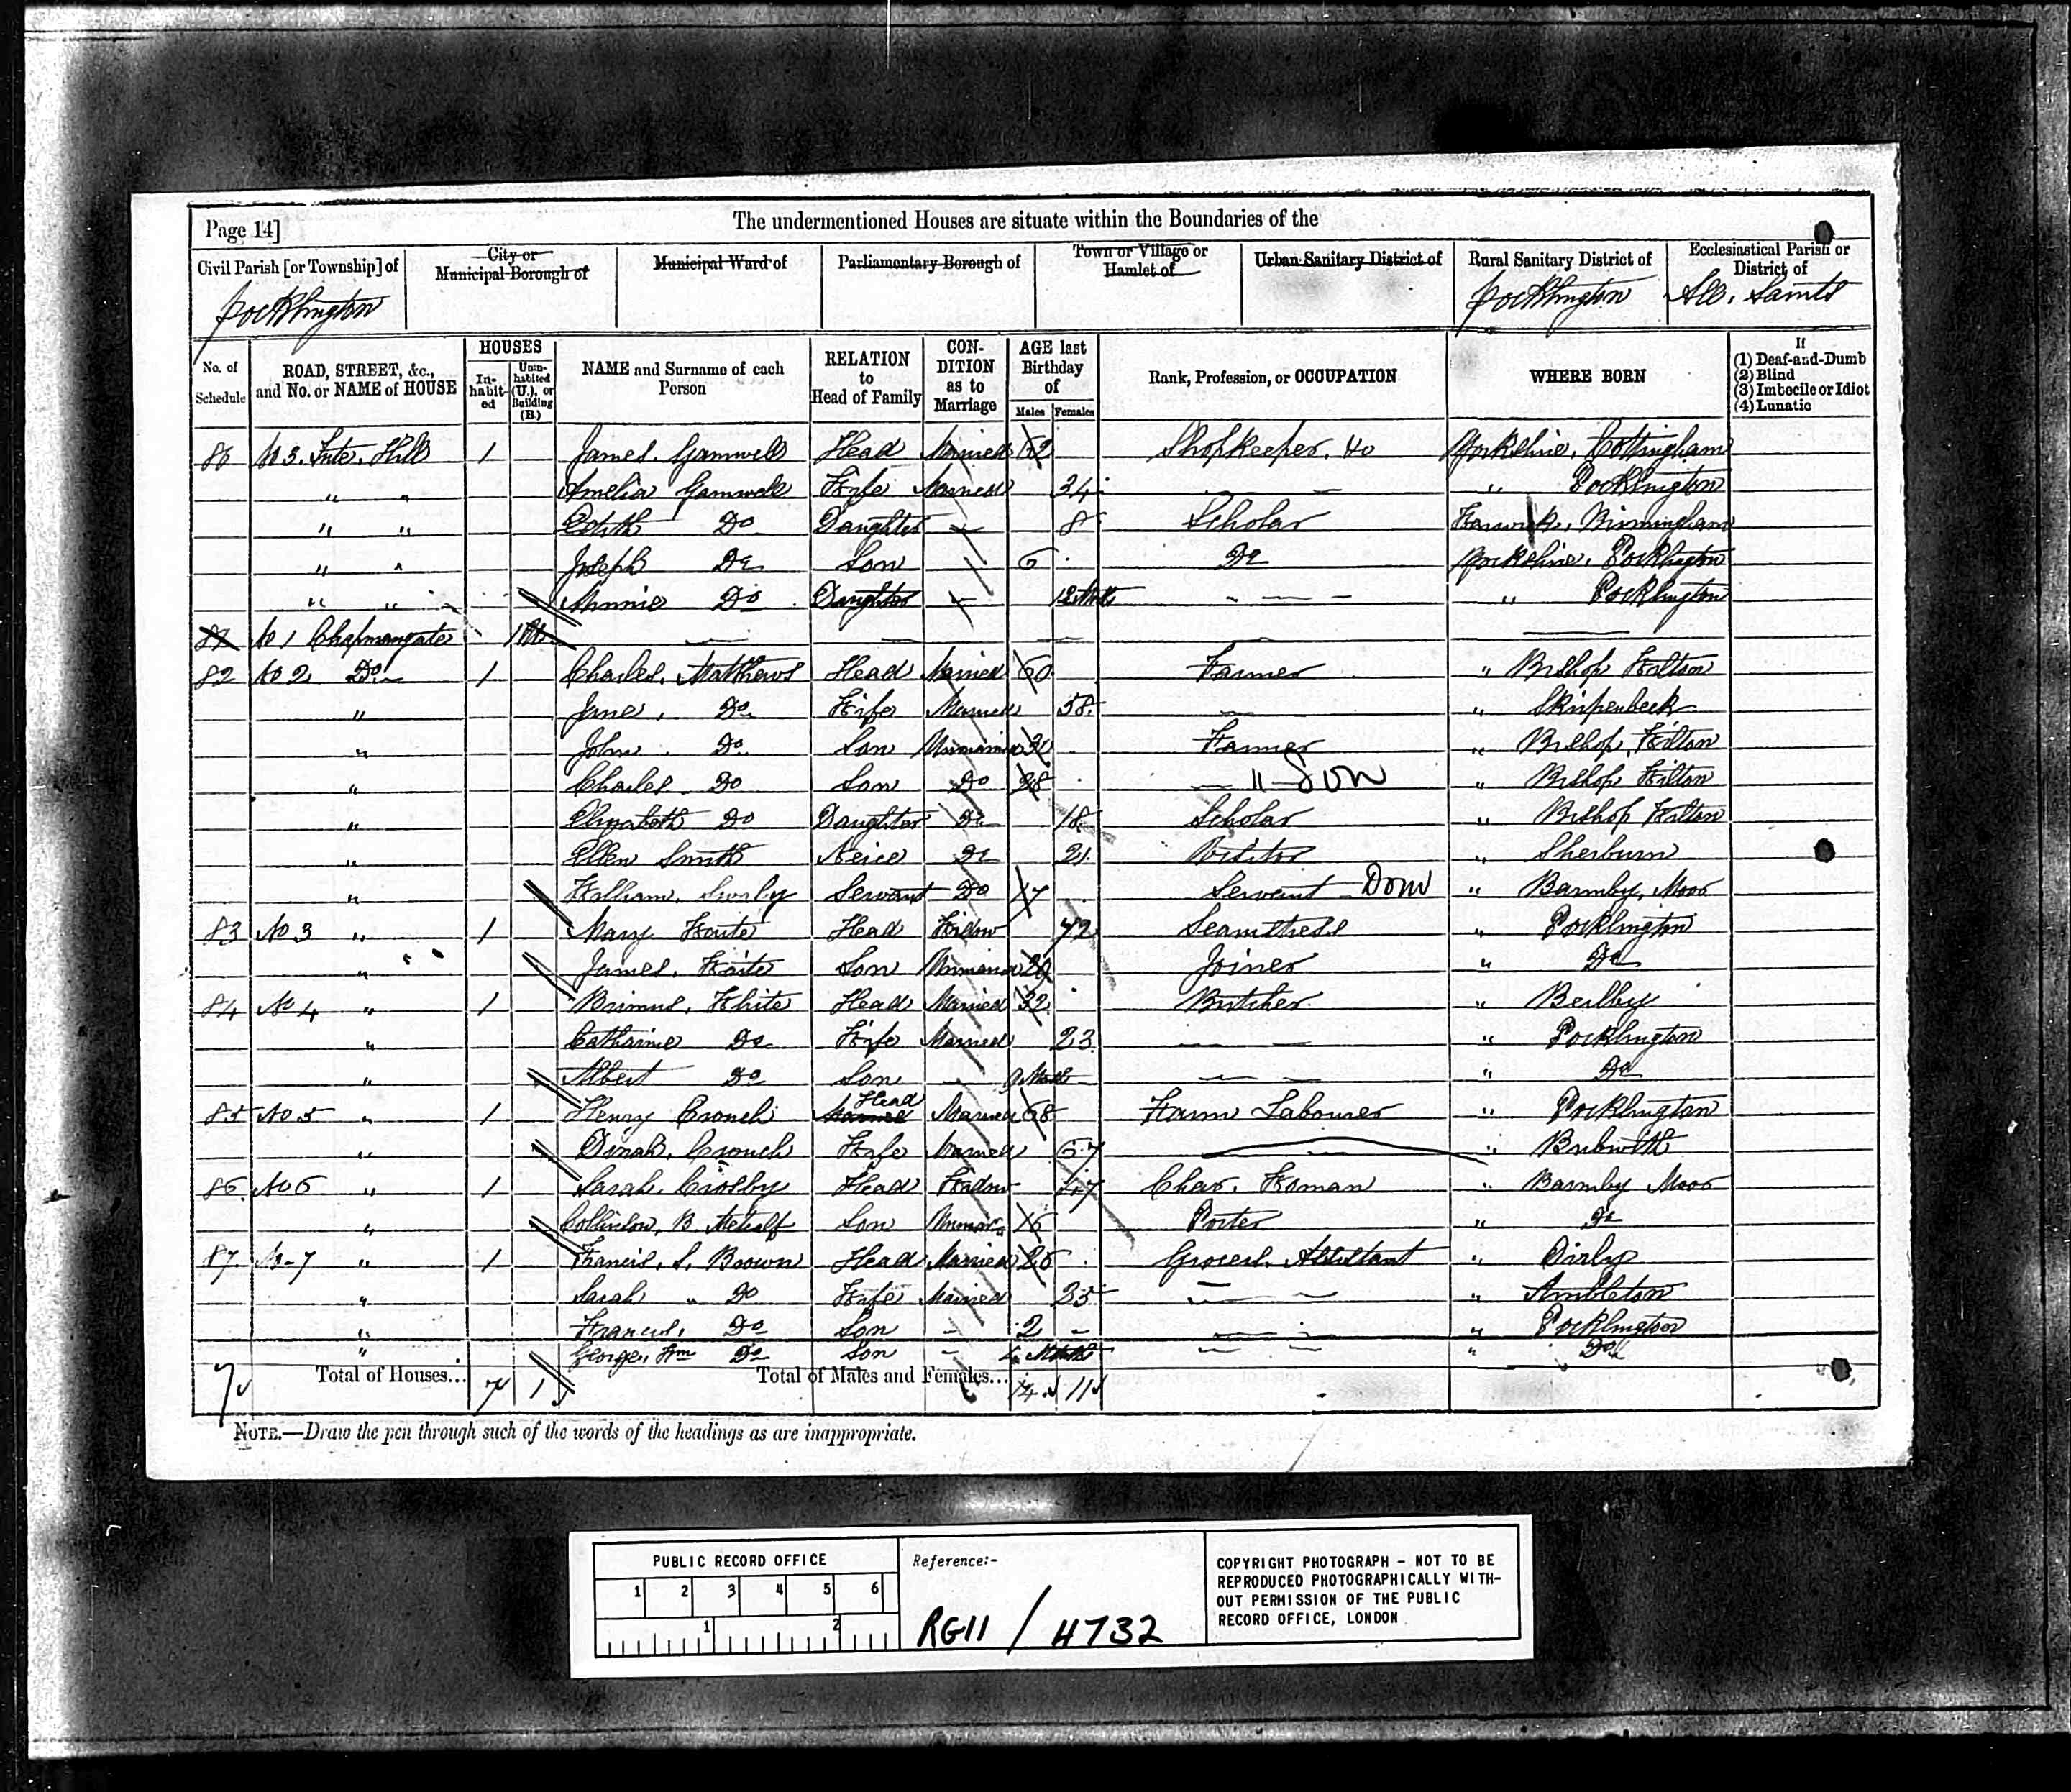 Page 14]
The undermentioned Houses are situate within the Boundaries of the
Civil Parish [or Township] of
City or Municipal Borough of
Municipal Ward of
Parliamentary Borough of
Town or Village or Hamlet of
Urban Sanitary District of
Rural Sanitary District of
Ecclesiastical Parish or District of
Pocklington Pocklington Saints
No. of Schedule
ROAD, STREET, &c., and No. or NAME of HOUSE
HOUSES
In-habit-ed
Unin-habited (U.), or Building (B.)
NAME and Surname of each Person
RELATION to Head of Family
CON-DITION as to Marriage
AGE last Birthday of
Males Females
Rank, Profession, or OCCUPATION
WHERE BORN
If
(1) Deaf-and-Dumb
(2) Blind
(3) Imbecile or Idiot
(4) Lunatic
No 3. Hill 1 James. Gamwell Head Married 62 Shopkeeper. Yorkshire, Cottingham
" " Amelia Gamwell Wife Married 34 — — " Pocklington
" " Edith Do Daughter — 8 Scholar Warwick, Birmingham
" " Joseph Do Son 6 Do Yorkshire, Pocklington
" " Minnie Do Daughter — — — — " Pocklington
81 No 1 Chapmangate 1 — — — — —
82 No 2 Do 1 Charles. Matthews Head Married 60 Farmer " Bishop Wilton
" Jane, Do Wife Married 58 — " Skirpenbeck
" John Do Son Unmarried Farmer " Bishop, Wilton
" Charles Do Son Do 28 — " Son " Bishop Wilton
" Elizabeth Do Daughter Do 18 Scholar " Bishop Wilton
" Ellen Smith Neice Do 21 Visitor " Sherburn
" William. Servant Do 17 Servant Dom " Barmby, Moor
83 No 3 " 1 Mary Waite Head Widow 42 Seamstress " Pocklington
" James, Waite Son Unmarried 20 Joiner " Do
84 No 4 " 1 White Head Married 32 Butcher " Beilby
" Catharine Do Wife Married 23 — — " Pocklington
" Albert Do Son — 9 Months — — " Do
85 No 5 " 1 Henry Crouch Head Married 68 Farm Labourer " Pocklington
" Dinah, Crouch Wife Married 67 — " Bubwith
86 No 6 " 1 Sarah, Crosby Head Widow 47 Char. Woman " Barmby Moor
" B. Metcalf Son Unmar. 16 Porter " Do
87 No 7 " 1 Francis, S. Brown Head Married 26 Grocers. Assistant "
" Sarah " Do Wife Married 25 — — "
" Francis, Do Son — 2 — — — " Pocklington
" George, Wm Do Son — Months — — " Do
7 Total of Houses... 7 1 Total of Males and Females... 14 11
NOTE.—Draw the pen through such of the words of the headings as are inappropriate.
PUBLIC RECORD OFFICE
1 2 3 4 5 6
1 2
Reference:-
RG11 / 4732
COPYRIGHT PHOTOGRAPH - NOT TO BE
REPRODUCED PHOTOGRAPHICALLY WITH-
OUT PERMISSION OF THE PUBLIC
RECORD OFFICE, LONDON